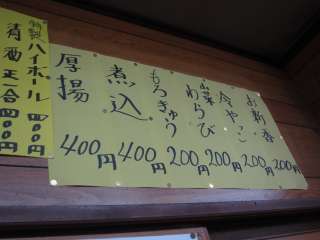 お新香 200円
冷やっこ 200円
山菜わらび 200円
もろきゅう 200円
煮込 400円
厚揚 400円
特製ハイボール 四〇〇円
清酒正一合 四〇〇円